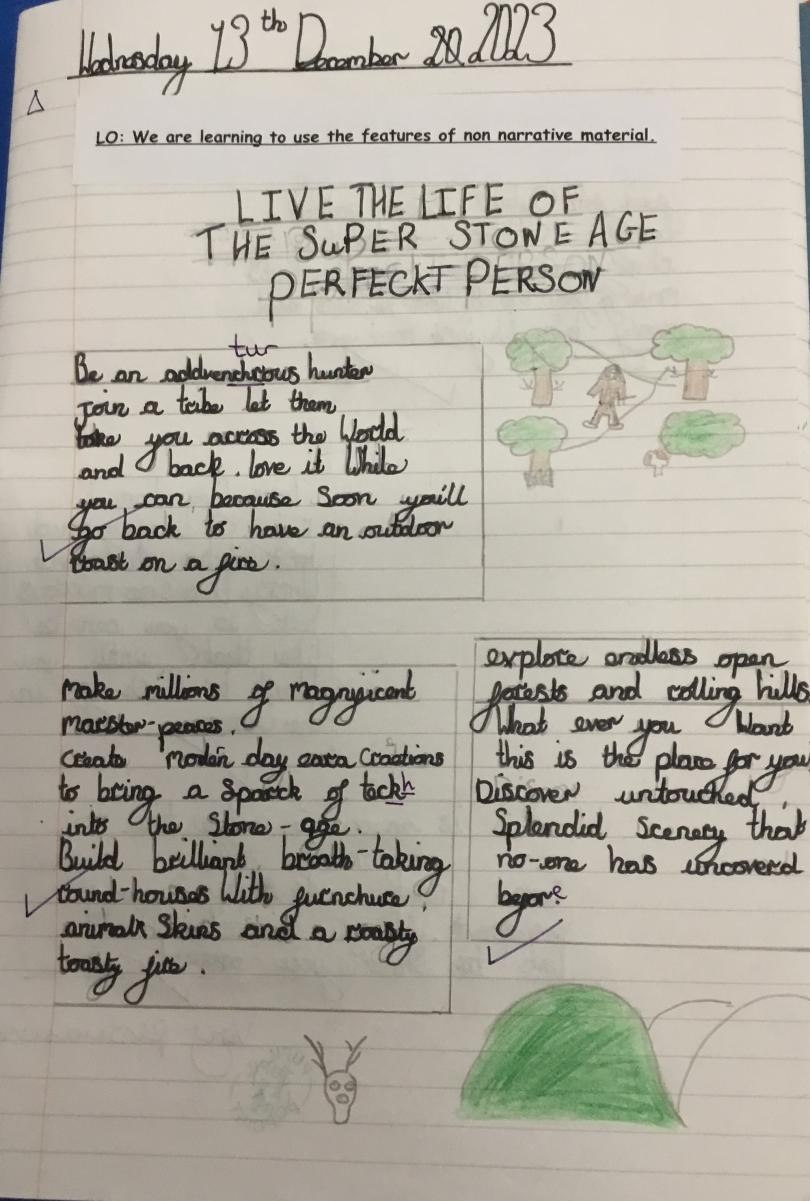 Wednesday 13th December 20 2023
LO: We are learning to use the features of non narrative material.
LIVE THE LIFE OF
THE SuPER STONE AGE
PERFECKT PERSON
tur
Be an addvenchrous hunter
Join a tribe let them
take you across the World
and back. love it While
you can because Soon youill
go back to have an outdoor
toast on a fire.
Make millions of magnificent
marster-peaces.
Create modern day cava Creations
to bring a Sparck of teckh
into the Stone-age.
Build brilliant breath-taking
round-houses With furnchure,
animals Skins and a roasty
toasty fire.
explore endless open
forests and rolling hills
What ever you Want
this is the place for you
Discover untouched,
Splendid Scenery that
no-one has uncovered
before